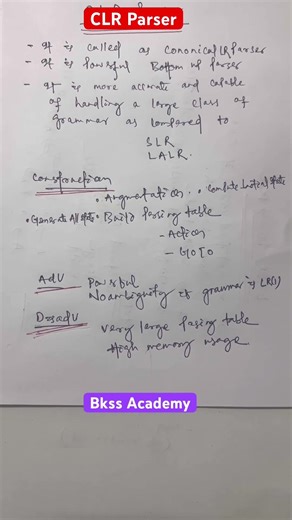 CLR Parser
- It is called as cononical LR Parser
- It is Powerful Bottom up Parser
- It is more accurate and capable
of handling a large class of
grammar as compared to
SLR
LALR.
Construction
• Augmentation • Compute Initial State
• Generate All State • Build Parsing table
- Action
- GOTO
Adv Powerful
No ambiguity if grammar is LR(1)
Disadv Very large Parsing table
High memory usage
Bkss Academy